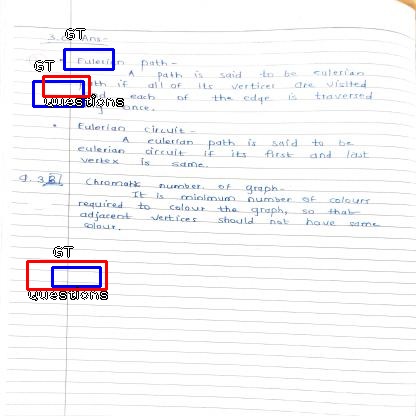 GT
Ans-
Eulerian path-
GT
A path is said to be eulerian
path if all of its vertices are visited
and each of the edge is traversed
Questions
once.
• Eulerian circuit-
A eulerian path is said to be
eulerian circuit if its first and last
vertex is same.
Q. 3 Chromatic number of graph-
It is minimum number of colours
required to colour the graph, so that
adjacent vertices should not have same
colour.
GT
Questions